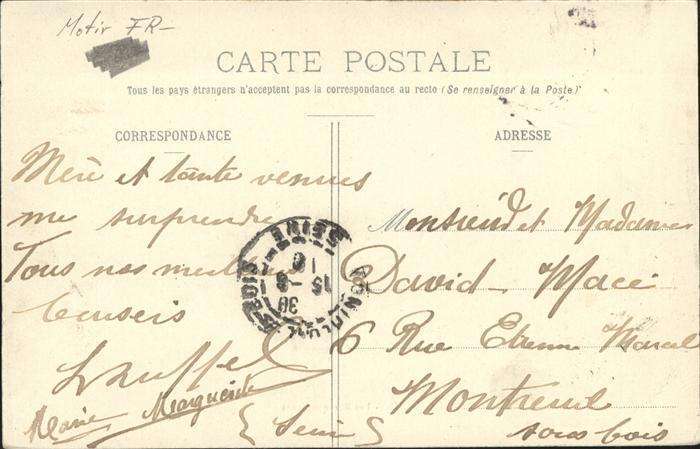 Motir FR-
CARTE POSTALE
Tous les pays étrangers n'acceptent pas la correspondance au recto (Se renseigner à la Poste)
CORRESPONDANCE
ADRESSE
Mère et tante venues
me surprendre
Tous nos meilleurs
baisers
Marie Marguerite
Monsieur et Madame
David Macé
6 Rue Etienne Marcel
Montreuil
sous bois
(Seine)
MONTREUIL S BOIS
SEINE